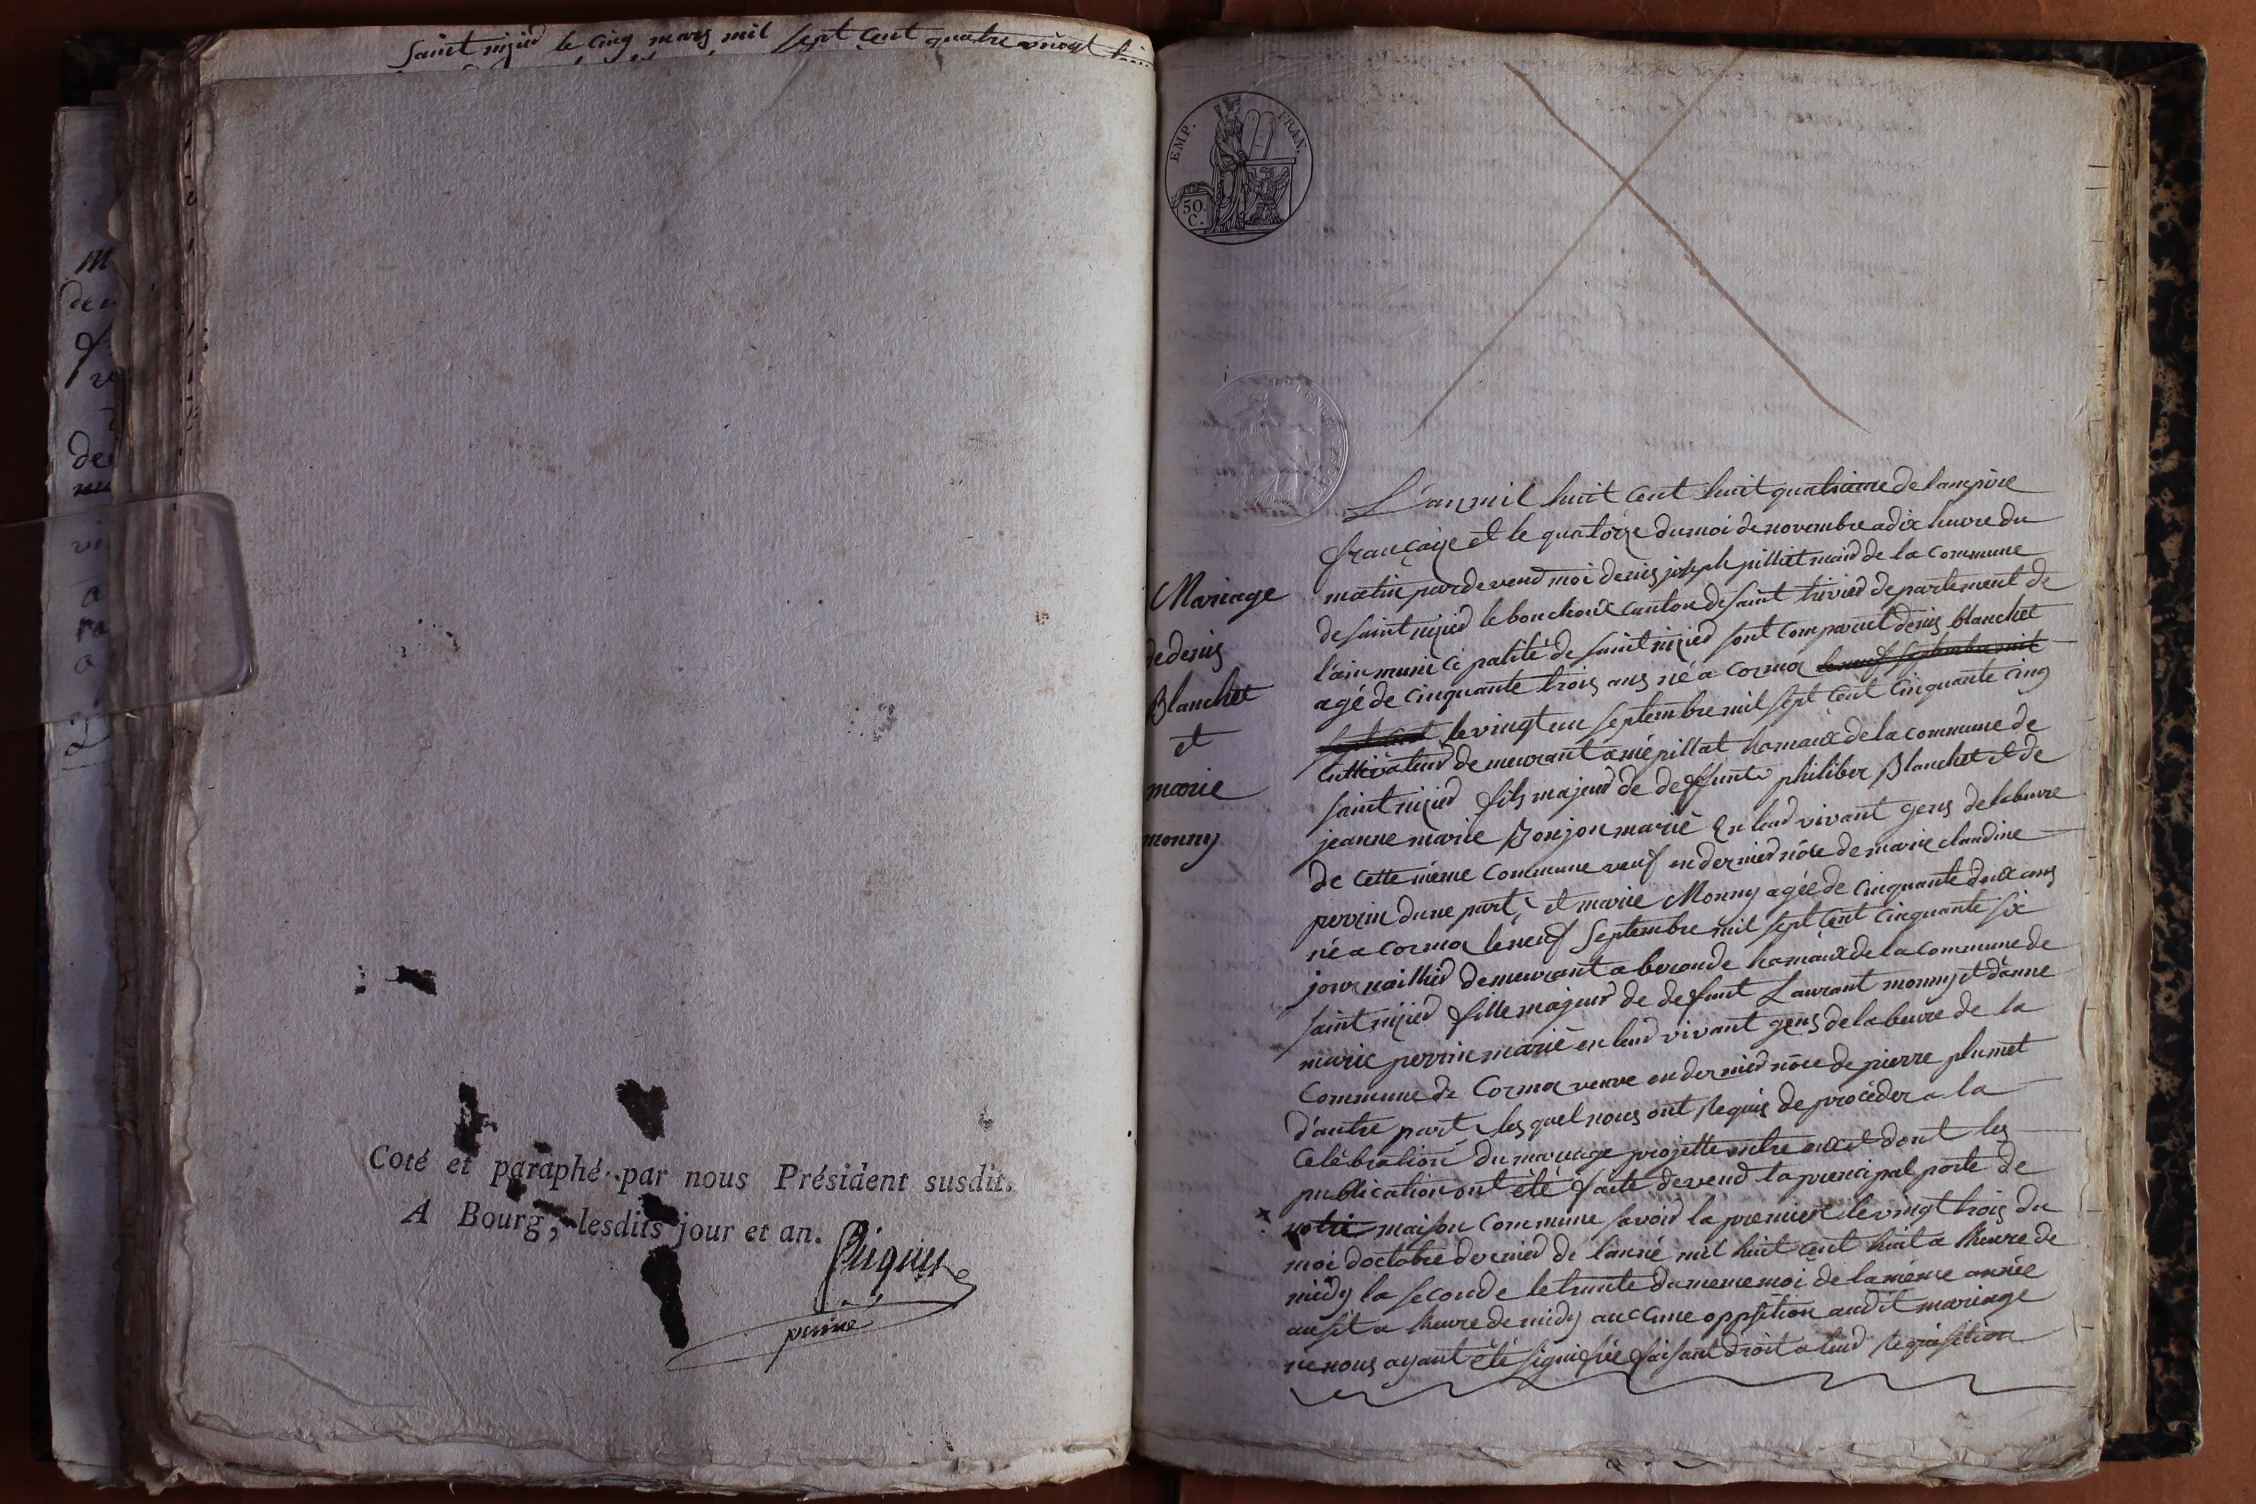 saint nizied le cinq mars mil sept cent quatre vingt
Coté et paraphé par nous Président susdit.
A Bourg, lesdits jour et an.
EMP. FRAN.
50.
C.
Mariage
de denis
Blanchet
et
marie
monny
L'an mil huit cent huit quatrieme de lampire
française et le quatorze du moi de novembre a dix heure du
matin pardevend moi denis joseph pilliet maird de la commune
de saint nizied le bouchoux canton de saint trivied departement de
l'ain municipalité de saint nizied sont comparut denis blanchet
agé de cinquante trois ans né a cormoz le neuf septembre mil
sept cent le vingt un septembre mil sept cent cinquante cinq
cultivateur demeurant a mépillat hamaux de la commune de
saint nizied fils majeur de deffunts philiber Blanchet et de
jeanne marie Bonjon marié en leud vivant gens de labeure
de cette même commune veuf en dernied nôce de marie claudine
perrin dune part, et marie Monny agée de cinquante deux ans
né a cormoz le neuf septembre mil sept cent cinquante six
journaillied demeurant a beronde hamaux de la commune de
saint nizied fille majeur de defunt Laurant monny et d'anne
marie perrin marié en leud vivant gens de labeure de la
commune de Cormoz veuve en dernied nôce de pierre plumet
d'autre part, les quel nous ont requis de procéder a la
célébration du mariage projette entre eux et dont les
publication ont été faite devend la principal porte de
notre maison commune savoir la premier le vingt trois du
moi doctobre dernied de l'anné mil huit cent huit a lheure de
midy la seconde le trente du meme moi de la même année
ausit a lheure de midy auccune oppsition audit mariage
ne nous ayant été signifiée faisant droit a leud requisition